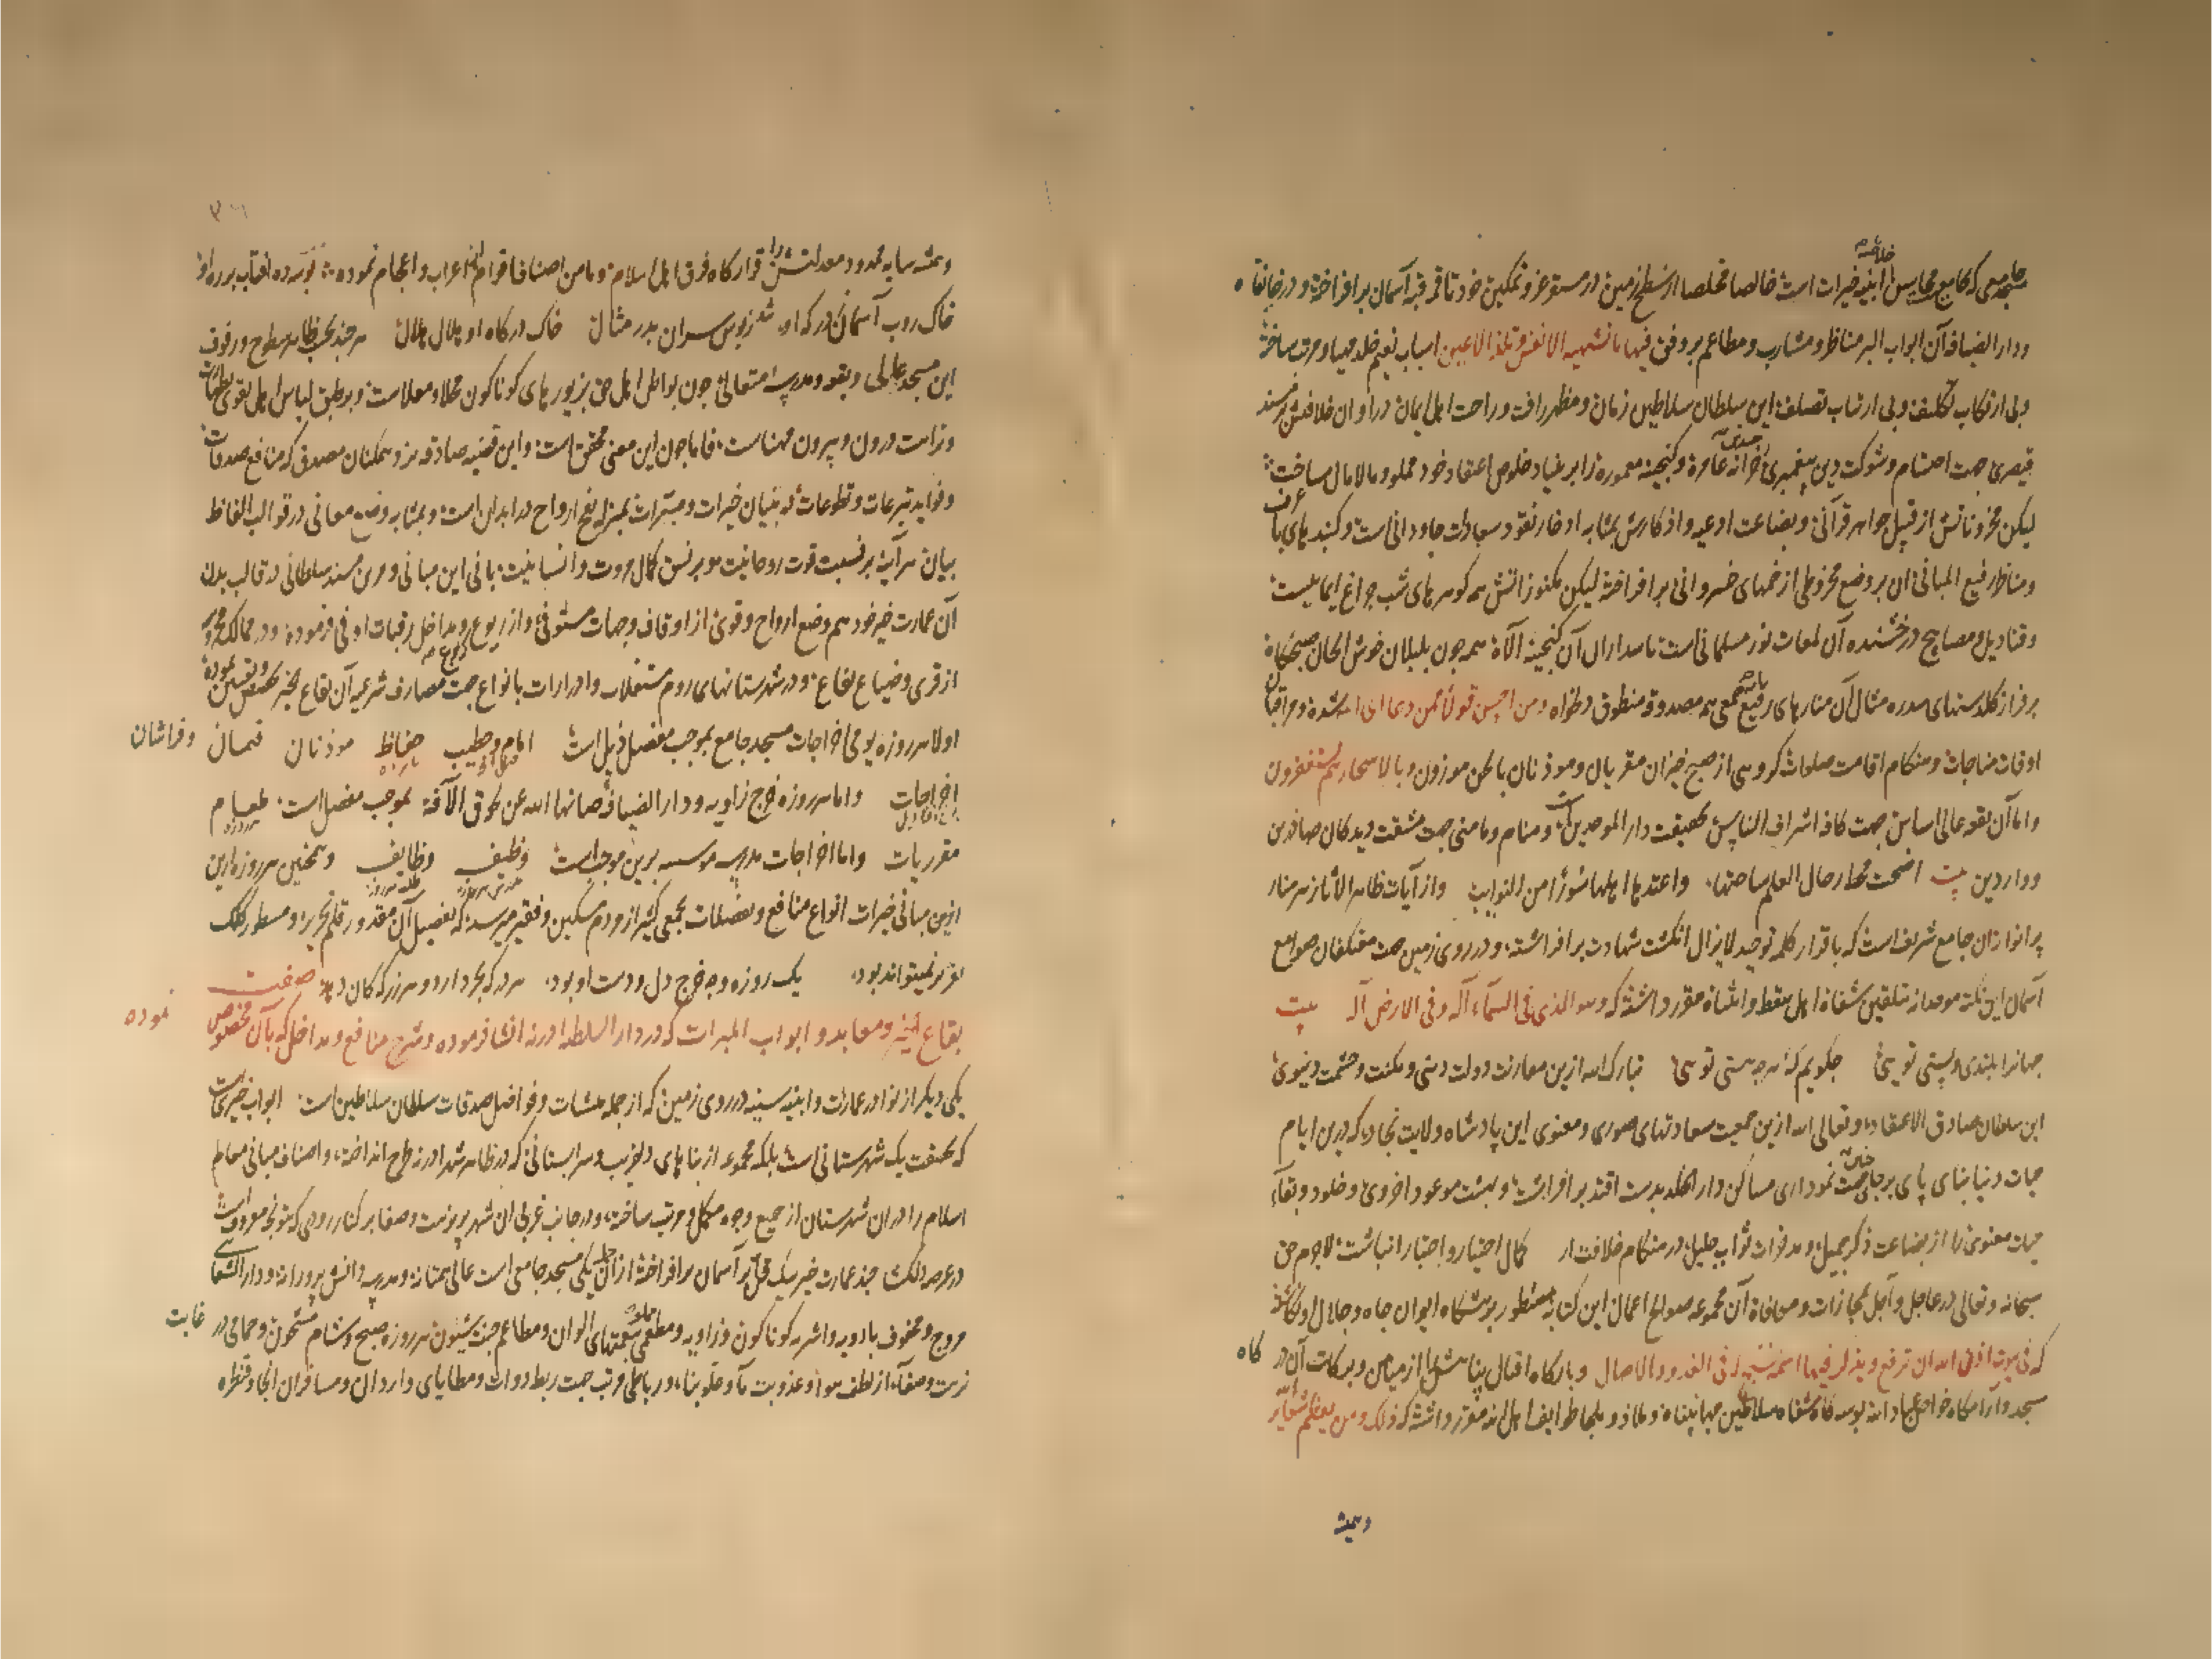 جامعی که جامع محاسن ابنیه خیرات است خالصا مخلصا از سطح زمین در مستقر عز و تمکین خود تا قمر قبه آسمان برافراخته و در خانقاه
و دار الضیافه آن ابواب البر مناظر و مشارب و مطاعم بر وفق فیها ما تشتهیه الانفس و تلذ الاعین اسباب نعیم خلد مهیا و مرتب ساخته
و بی ارتکاب تکلیف و بی ارتیاب تصلف این سلطان سلاطین زمان و مظهر رافت و راحت اهل ایمان در اوان خلافتش بر مسند
قیصری جهت احتشام و شوکت دین پیغمبری خزانه عامره و گنجینه معموره را بر بنیاد خلوص اعتقاد خود مملو و مالامال ساخت
لیکن مخزوناتش از قبیل جواهر قرآنی و بضاعت ادعیه و اذکارش بمثابه ادخار نقود سعادات جاودانی است و گنبدهای با
و مناظر رفیع المبانی آن بر وضع مخروطی از خمهای خسروانی برافراخته لیکن مکنوزاتش همه گوهرهای شب چراغ ایمانیست
و قنادیل و مصابیح درخشنده آن لمعات نور مسلمانی است پاسداران آن گنجینه آلاء همه چون بلبلان خوش الحان صبحگاه
بر فراز گلدستهای سدره مثال آن منارهای رفیع جمعی همه مصدوقه منطوق و من احسن قولا ممن دعا الی الله شده و مراقبان
اوقات مناجات و هنگام اقامت صلوات گروهی از صبح خیزان مقریان و موذنان بالحن موزون و بالاسحار هم یستغفرون
و اما آن بقعه عالی اساس جهت کافه اشراف الناس بحقیقت دار الموحدین و منام و مامنی جهت مشقت دیدگان صادرین
و واردین بیت اضحت محط رحال العلم ساحتها واعتدها اهلها سورا من النوایب و از آیات ظاهر الاثار هر منار
پر انوار آن جامع شریف است که باقرار کلمه توحید لایزال انگشت شهادت برافراشته و در روی زمین جهت معتکفان صوامع
آسمان این نکته موحدانه تلقین شفاه اهل یقظه و انتباه مقرر داشته که وهو الذی فی السماء اله و فی الارض اله بیت
جهانرا بلندی و پستی تویی چگویم که هر چه هستی تویی تبارک الله ازین معارنت دولت دینی و مکنت و حشمت دنیوی
این سلطان صادق الاعتقاد و تعالی الله ازین جمعیت سعادتهای صوری و معنوی این پادشاه ولایت نجاد که درین ایام
حیات دنیا بنای پای برجای جهت نموداری مساکن دار الخلد بدست اقتدار برافراشت و بهشت موعود اخروی و خلود و بقاء
حیات معنوی را از بضاعت ذکر جمیل و مدخرات ثواب جزیل در هنگام خلافت از کمال اختیار و اختبار انباشت لاجرم حق
سبحانه و تعالی در عاجل و آجل بمجازات و مکافاة آن مجموعه صوالح اعمال این کتابه مسطور بر پیشگاه ایوان جاه و جلال او نگاشته
که فی بیوت اذن الله ان ترفع و یذکر فیها اسمه یسبح له فیها بالغدو والاصال و بارگاه اقبال پناهش را از میامن و برکات آن در گاه
مسجد و آرامگاه خواص عباد الله بوسه گاه شفاه سلاطین جهانپناه و ملاذ و ملجا طوایف اهل الله مقرر داشته که ذلک ومن یعظم شعائر
وهمیشه
و همیشه سایه ممدود معدلتش را قرارگاه فرق اهل اسلام و مامن اصناف اقوام از اعراب و اعجام نموده بوسه ده افتاب بر ره او
خاک روب آسمان درگه او شد زبوس سران بدر مثال خاک درگاه او هلال هلال هر چند بحسب ظاهر سطوح و رفوف
این مسجد عالی و بقعه و مدرسه متعالی چون بواطن اهل حق بزیورهای گوناگون محلا و معلاست و بر طبق لباس اهل تقوی
و نزاهت درون و بیرون مهناست فاما چون این معنی محقق است و این قضیه صادقه نزد همگنان مصدق که منافع صدقات
و فواید تبرعات و تطوعات در بنیان خیرات و مبترات بمنزله نفخ ارواح در ابدان است و بمثابه وضع معانی در قوالب الفاظ
بیان هرآینه بر نسبت قوت روحانیت و بر نسق کمال مروت و انسانیت بانی این مبانی و مزین مسند سلطانی در قالب بدن
آن عمارت خیر خود هم وضع ارواح و قوی از اوقاف و جهات مستوفی و از ریوع و مداخل رقبات اوفی فرموده و در ممالک محروسه
از قری و ضیاع بقاع و در شهرستانهای روم مستغلات و ادرارات بانواع جهت مصارف شرعیه آن بقاع بخیر تخصیص و تعیین نموده
اولا هر روزه یومی اخراجات مسجد جامع بموجب مفصل ذیل است امام و خطیب حفاظ موذنان قیمان و فراشان
اخراجات و اما هر روزه خرج زاویه و دار الضیافه صانها الله عن طوق الآفة بموجب مفصل است طعام
مقرریات و اما اخراجات مدرسه موسسه برین موجب است وظیفه وظایف و همچنین هر روزه ازین
ازین مبانی خیرات انواع منافع و تفضلات بجمعی کثیر از مردم مسکین و فقیر میرسد که تفصیل آن مقدور قلم تحریر و مسطور کلک
تقریر نمیتواند بود یک روزه وجه خرج دل و دست او بود هر در که بحر دارد و هر زر که کان دهد صفت
بقاع الخیر و معابد و ابواب المبرات که در دار السلطنه ادرنه انشا فرموده و شرح منافع و مداخل که بآن مخصوص نموده
یکی دیگر از نوادر عمارات و ابنیه سنیه در روی زمین که از جمله منشآت و فواضل صدقات سلطان سلاطین است ابواب خیری است
که بحقیقت یک شهرستانی است بلکه مجموعه از بناهای دلفریب و سرابستانی که در ظاهر شهر ادرنه طرح انداخته و اصناف مبانی معالم
اسلام را در آن شهرستان از جمیع وجوه مکمل و مرتب ساخته و در جانب غربی آن شهر پر زینت و صفا بر کنار رودی که بتونجه معروف است
در عرصه دلگشا چند عمارت خیر بیک محل بر آسمان برافراخته از آن جمله یکی مسجد جامعی است عالی همتانه و مدرسه دانش پرورانه و دار الشفای
مروح و محفوف بادویه و اشربه گوناگون و زاویه و مطعمی مملو بنعمتهای الوان و مطاعم جهت شیئون هر روزه صبح و شام مشحون و حمامی در غایت
زینت و صفا از لطف هوا و عذوبت ماء و علو بناء و رباطی مرتب جهت ربط دواب و مطایای واردان و مسافران انجا و قنطره